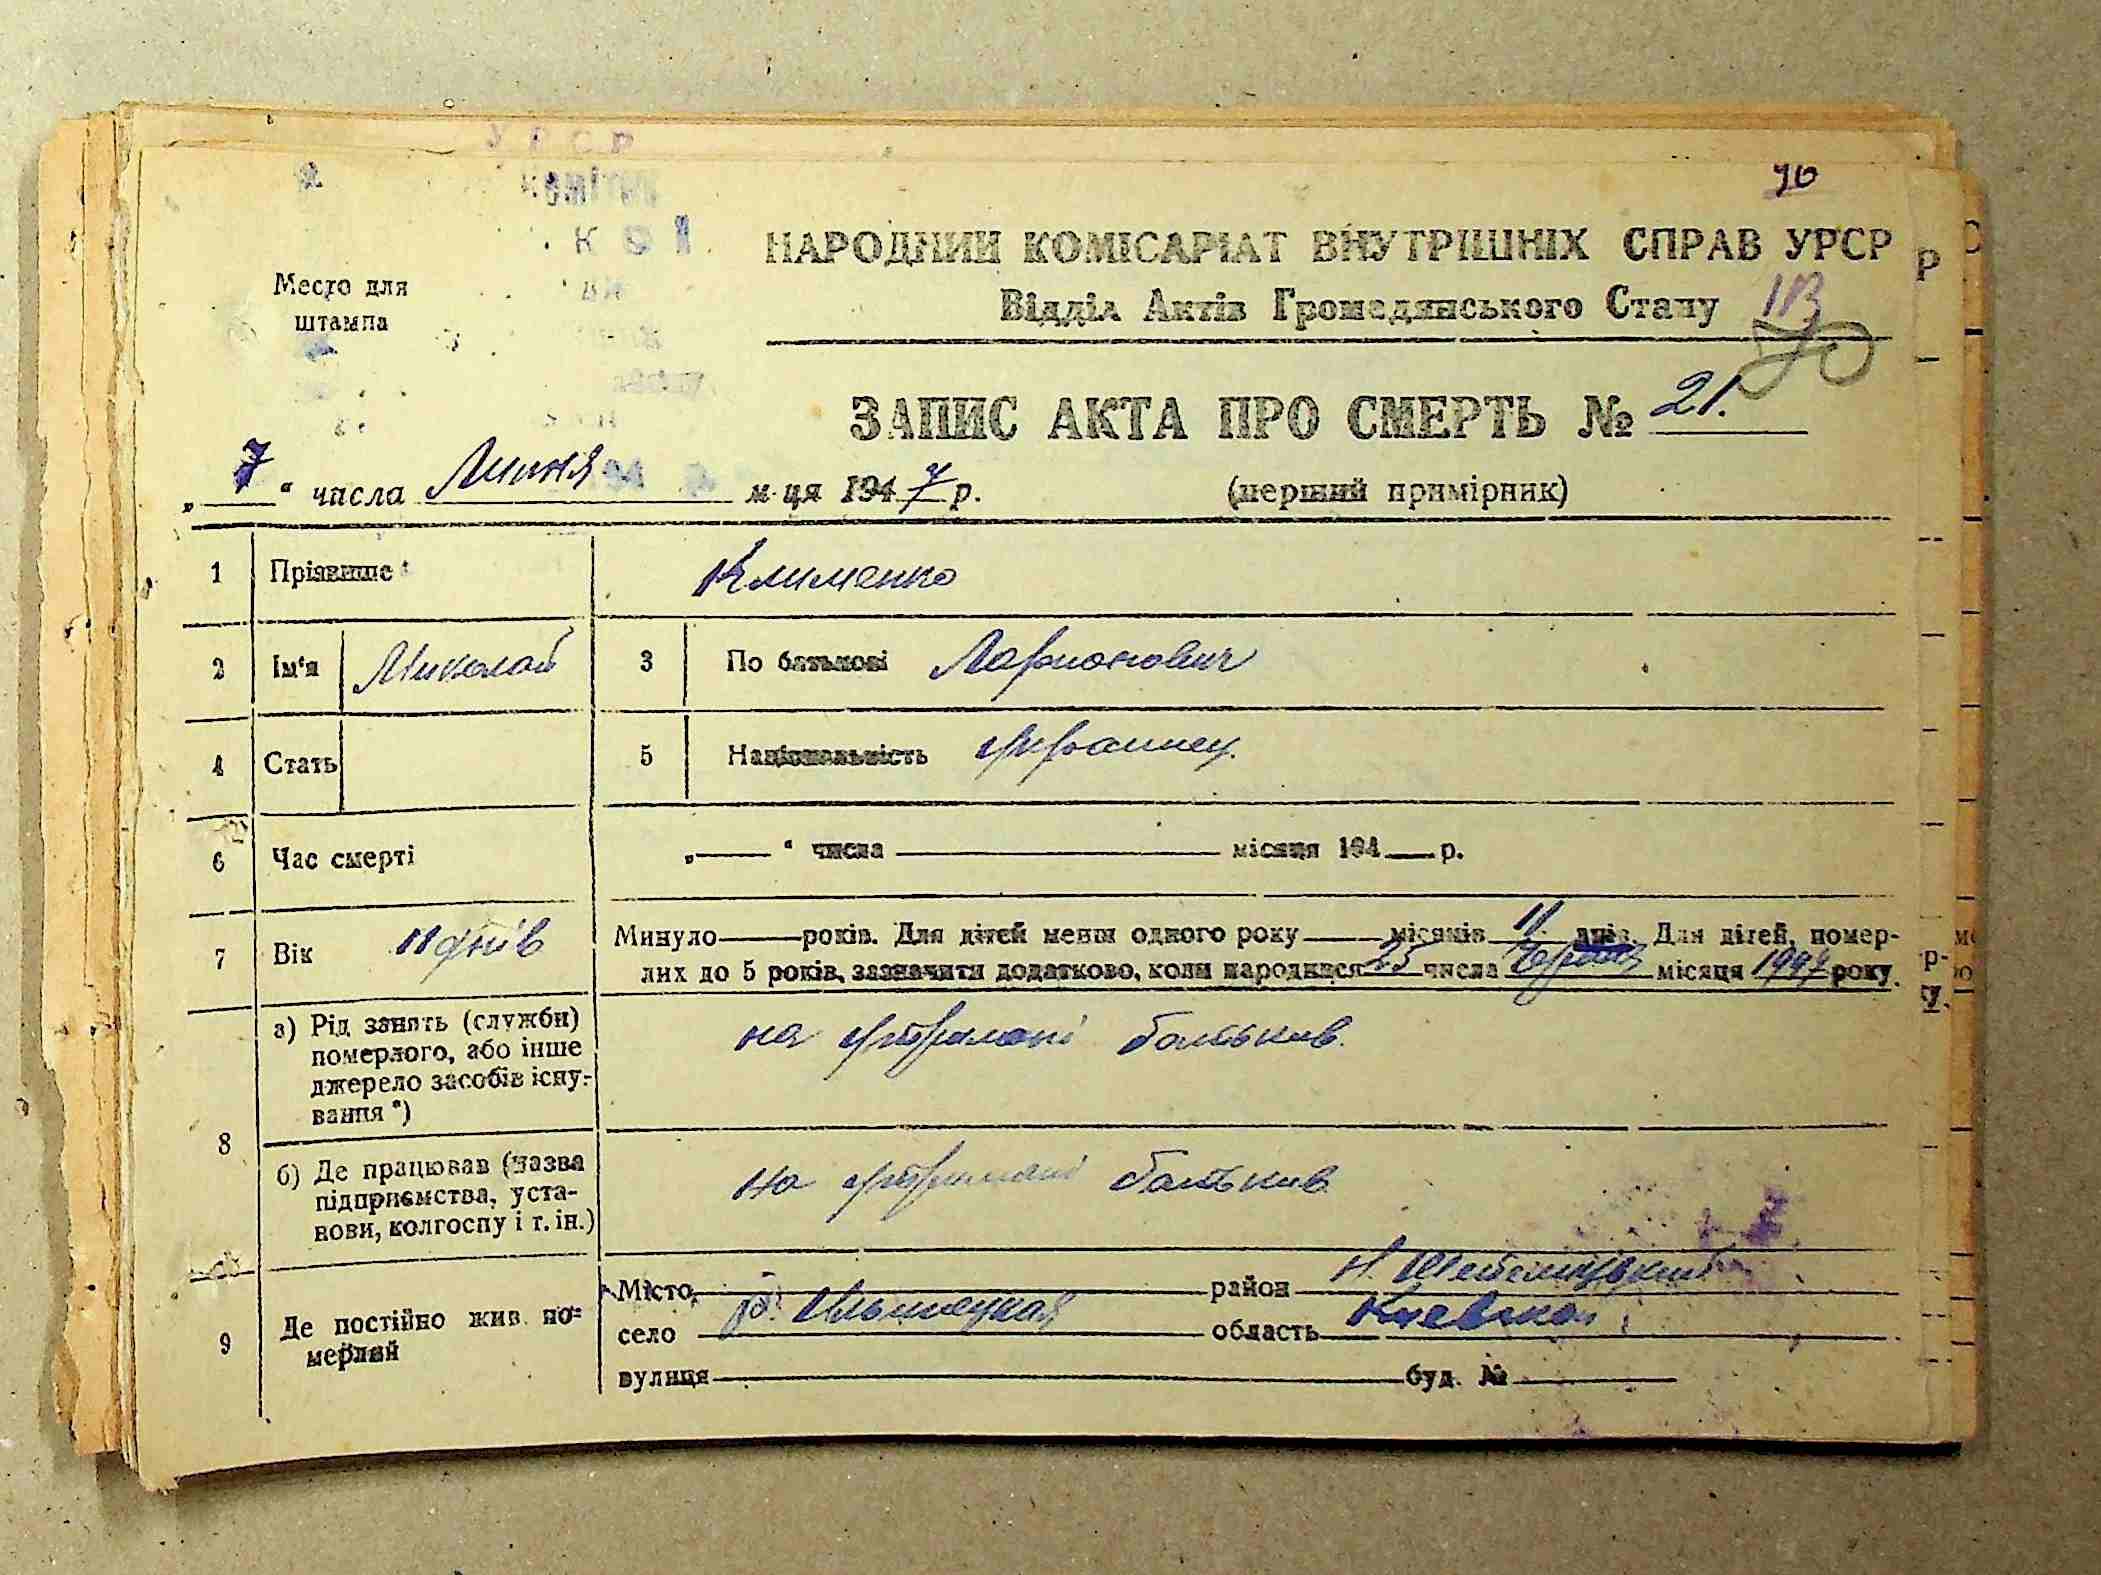 УРСР
96
НАРОДНИЙ КОМІСАРІАТ ВНУТРІШНІХ СПРАВ УРСР
Место для
штампа
Відділ Актів Громадянського Стану
ЗАПИС АКТА ПРО СМЕРТЬ № 21.
„7“ числа Липня м-ця 1947 р. (перший примірник)
1 Прізвище Клименко
2 Ім'я Миколай 3 По батькові Ларионович
4 Стать 5 Національність Украинец.
6 Час смерті „ “ числа місяця 194 р.
7 Вік 11 днів Минуло років. Для дітей менш одного року місяців 11 днів. Для дітей, помер-
лих до 5 років, зазначити додатково, коли народився 25 числа Червня місяця 1947 року.
8 а) Рід занять (служби)
померлого, або інше
джерело засобів існу-
вання *)
на утримані батьків.
б) Де працював (назва
підприємства, уста-
нови, колгоспу і т. ін.)
на утримані батьків
9 Де постійно жив по-
мерлий
Місто район
село область Киевская
вулиця буд. №